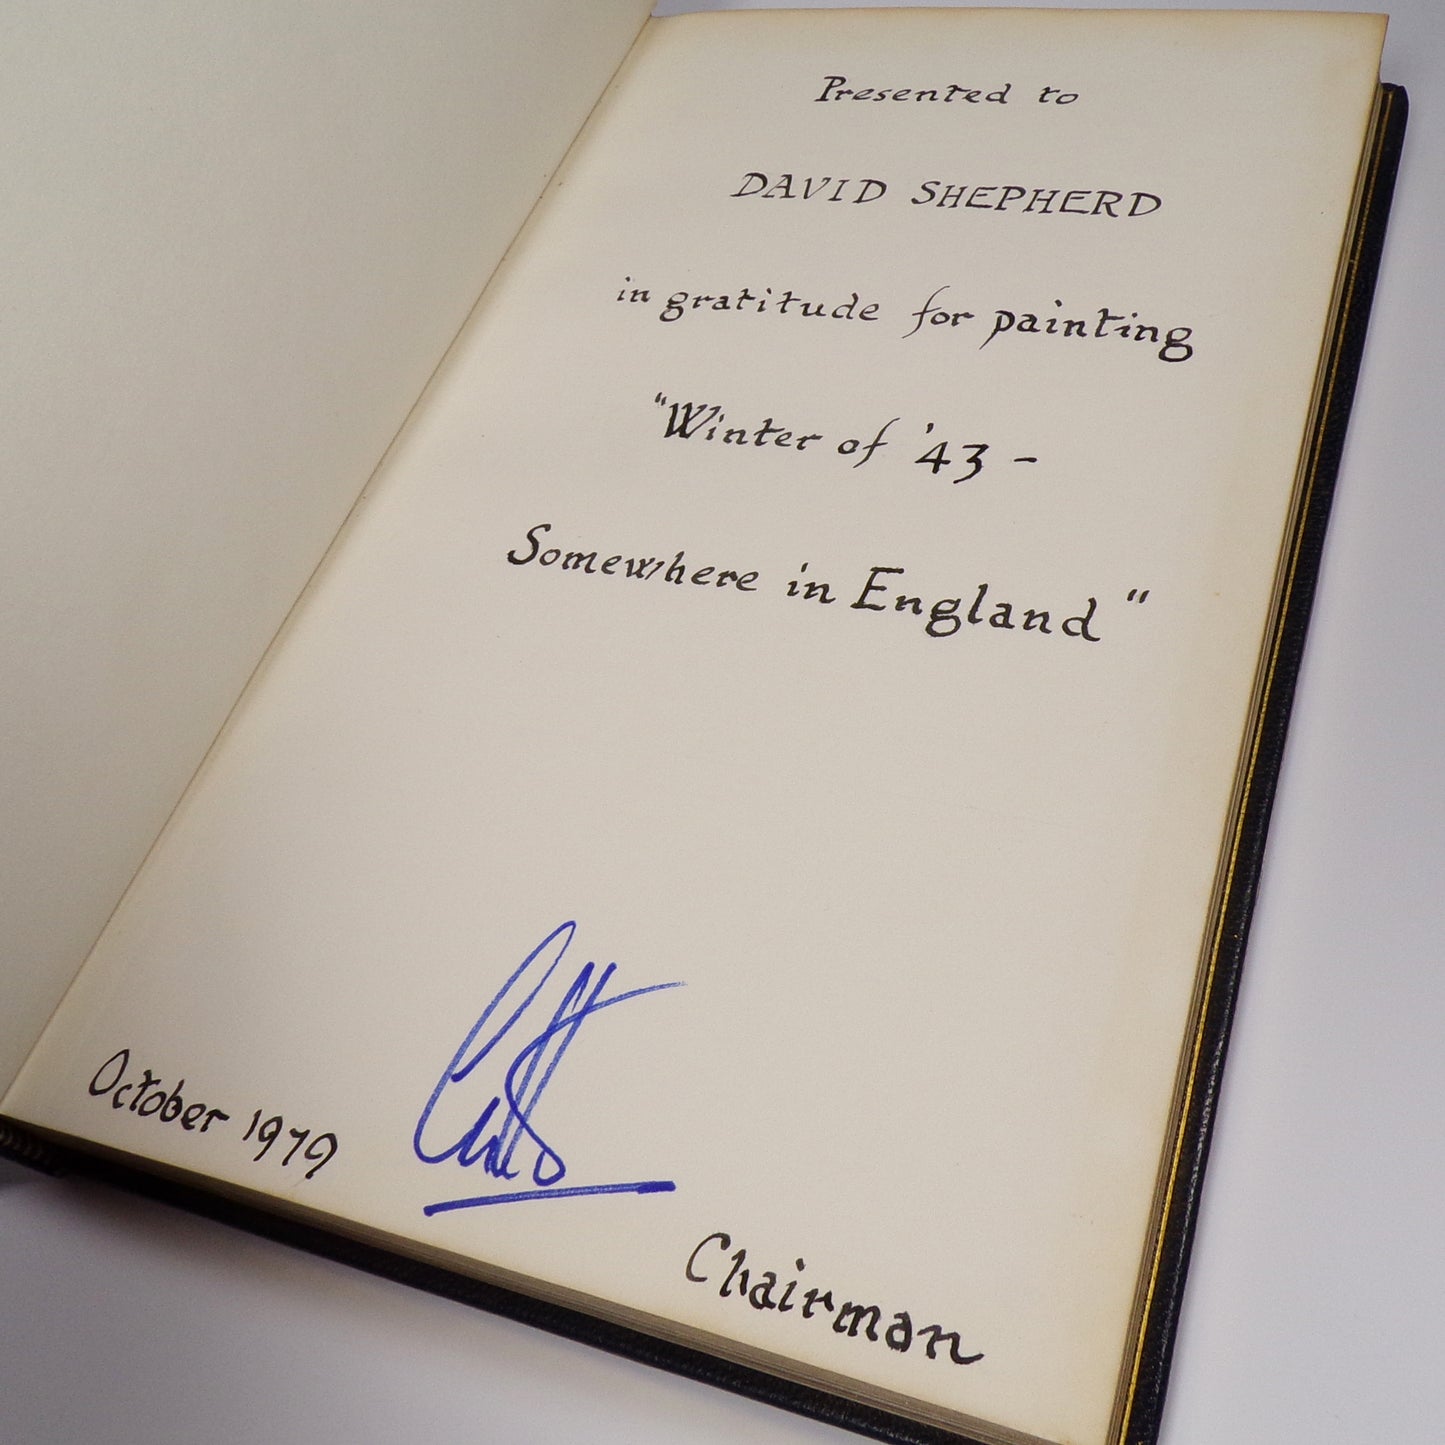 Presented to
DAVID SHEPHERD
in gratitude for painting
"Winter of '43 -
Somewhere in England"
October 1979
Chairman